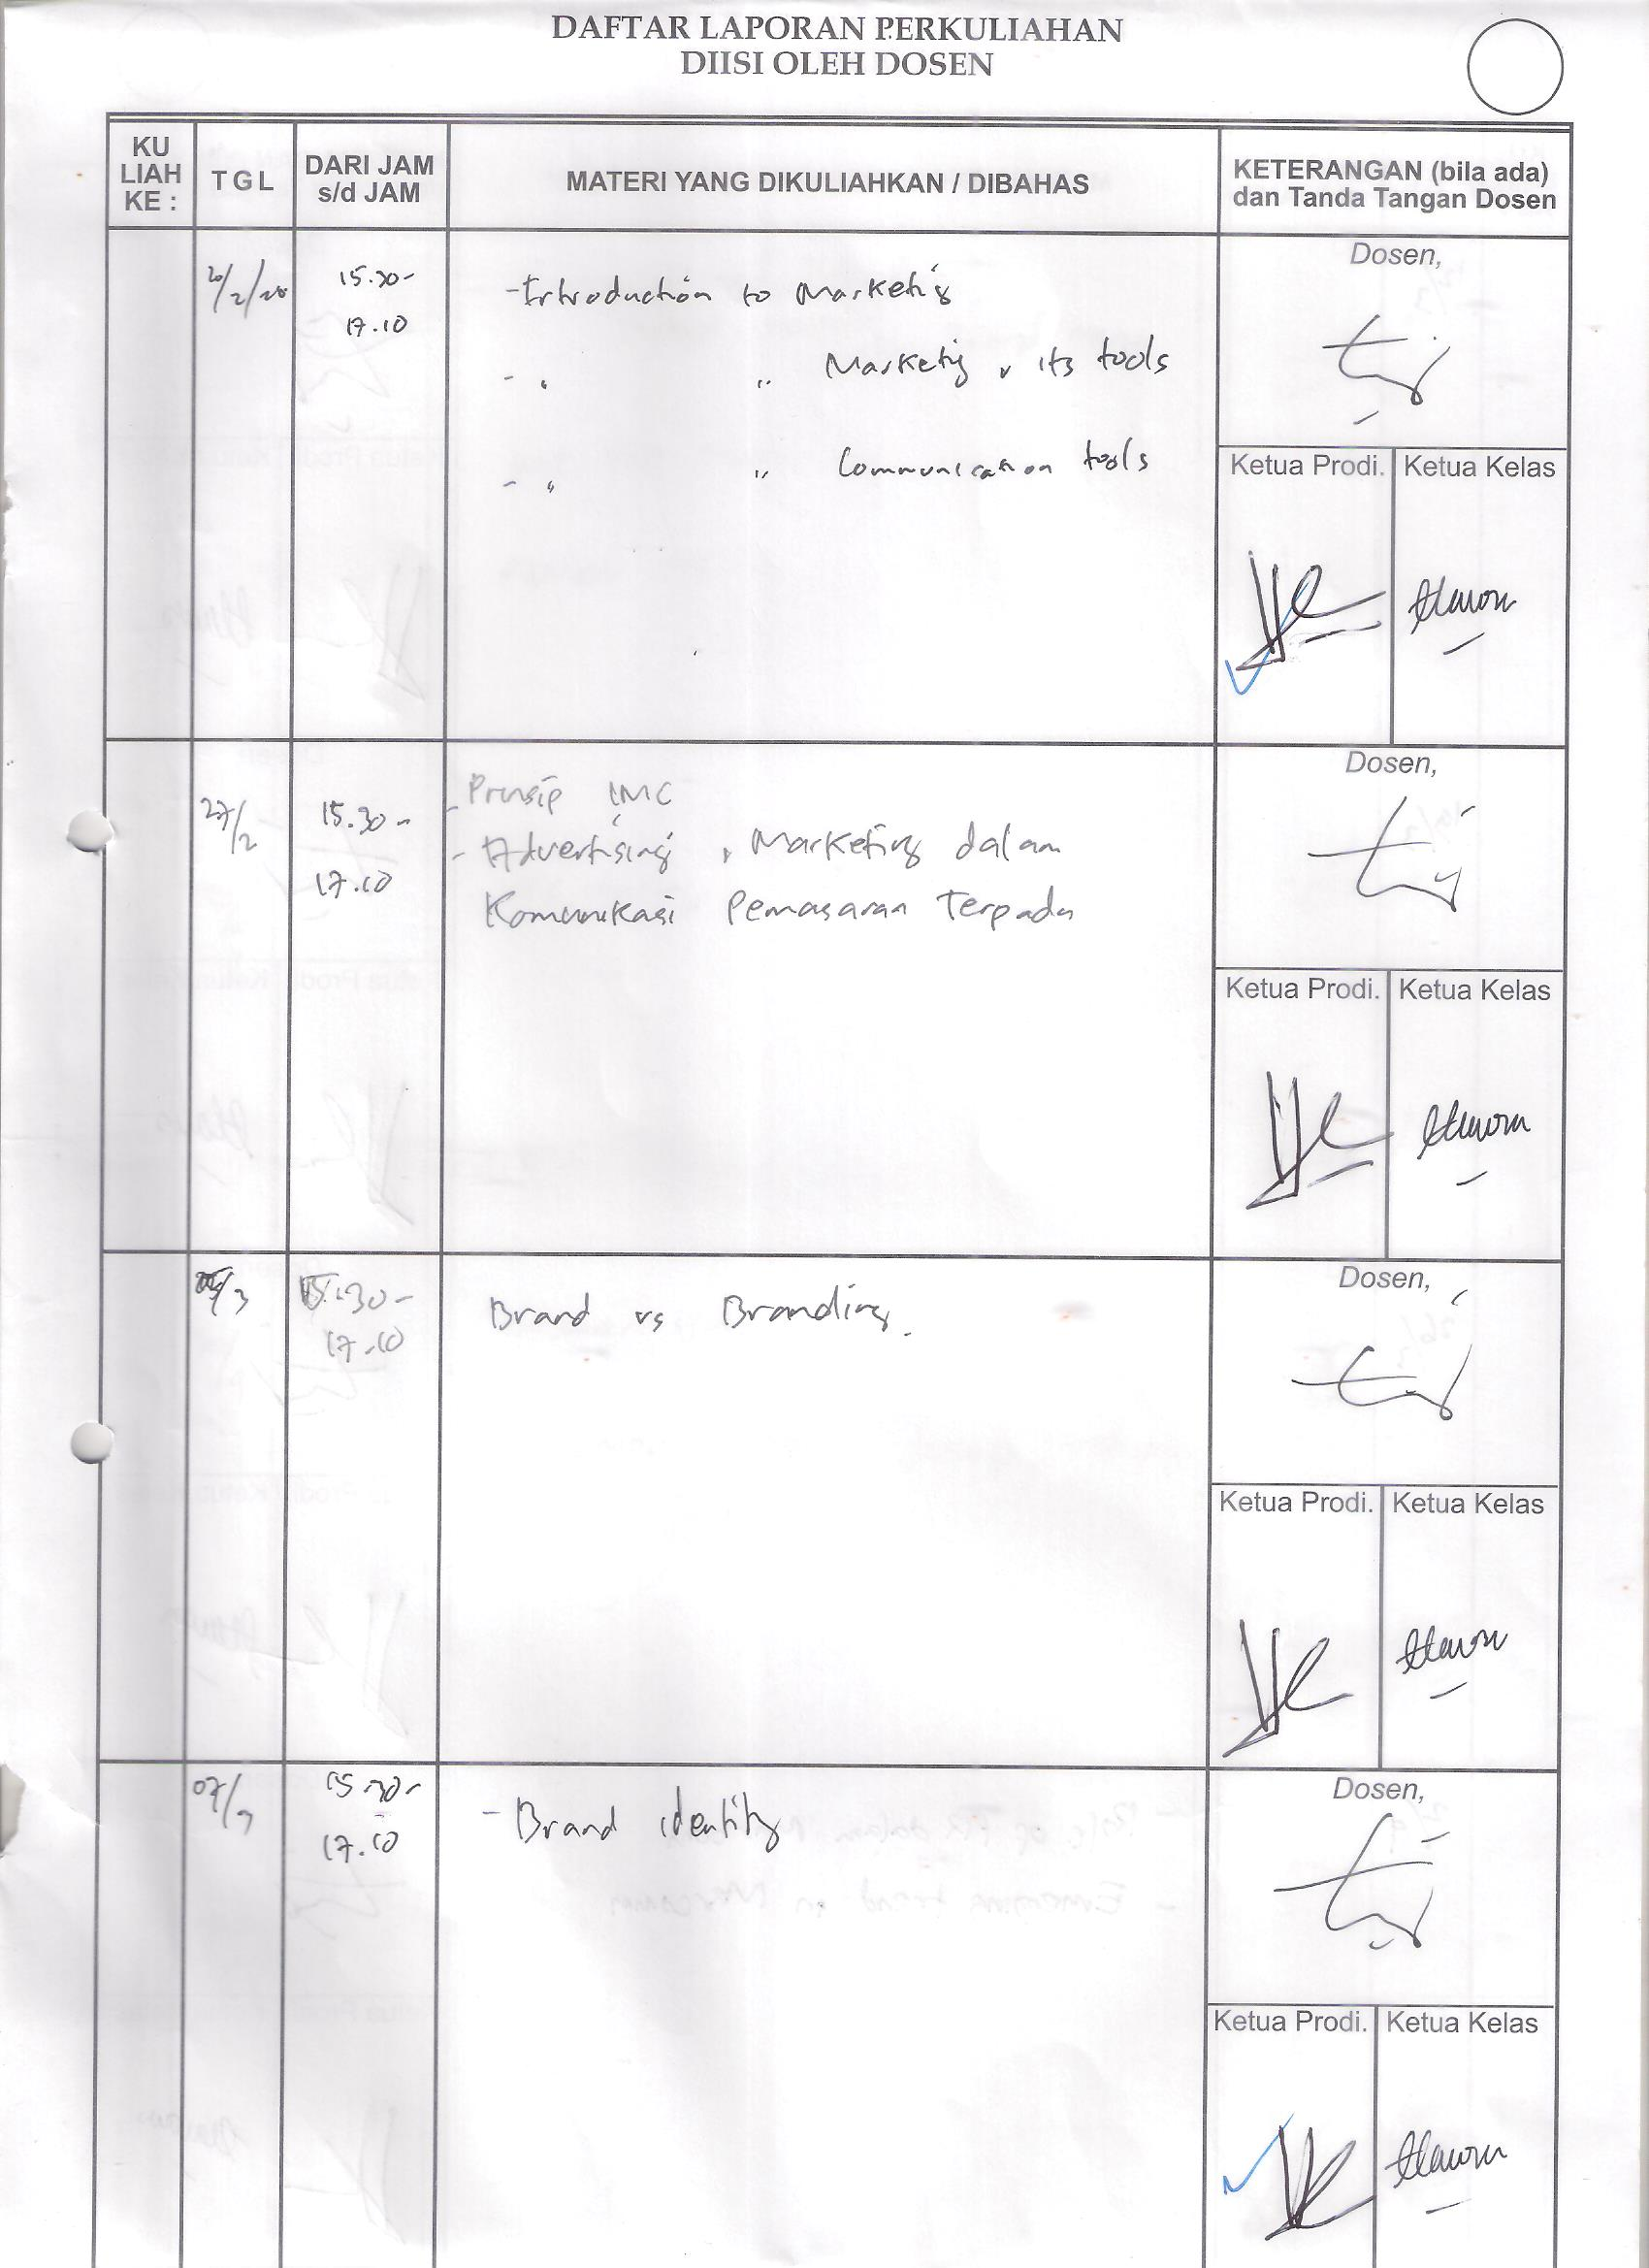 DAFTAR LAPORAN PERKULIAHAN
DIISI OLEH DOSEN
KU
LIAH
KE :
T G L
DARI JAM
s/d JAM
MATERI YANG DIKULIAHKAN / DIBAHAS
KETERANGAN (bila ada)
dan Tanda Tangan Dosen
20/2/20
15.30-
17.10
- Introduction to Marketing
- " " Marketing & its tools
- " " Communication tools
Dosen,
Ketua Prodi. Ketua Kelas
27/2
15.30-
17.10
- Prinsip IMC
- Advertising & Marketing dalam
Komunikasi Pemasaran Terpadu
Dosen,
Ketua Prodi. Ketua Kelas
05/3
15.30-
17.10
Brand vs Branding.
Dosen,
Ketua Prodi. Ketua Kelas
07/3
15.30-
17.10
- Brand identity
Dosen,
Ketua Prodi. Ketua Kelas